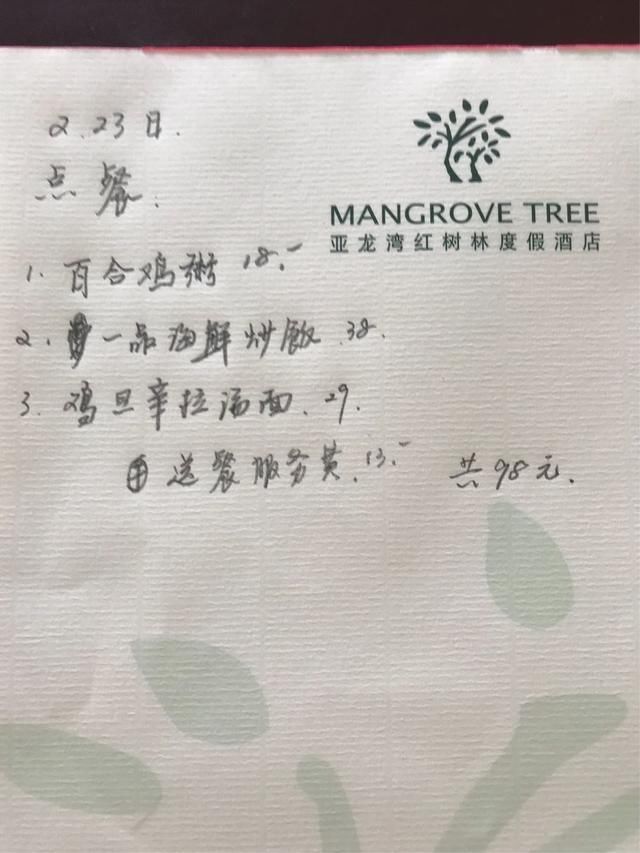 2.23日.
点餐:
MANGROVE TREE
亚龙湾红树林度假酒店
1. 百合鸡粥 18.-
2. 一品海鲜炒飯 38.
3. 鸡旦辛拉汤面. 29.
⊕ 送餐服务费. 13.- 共98元.